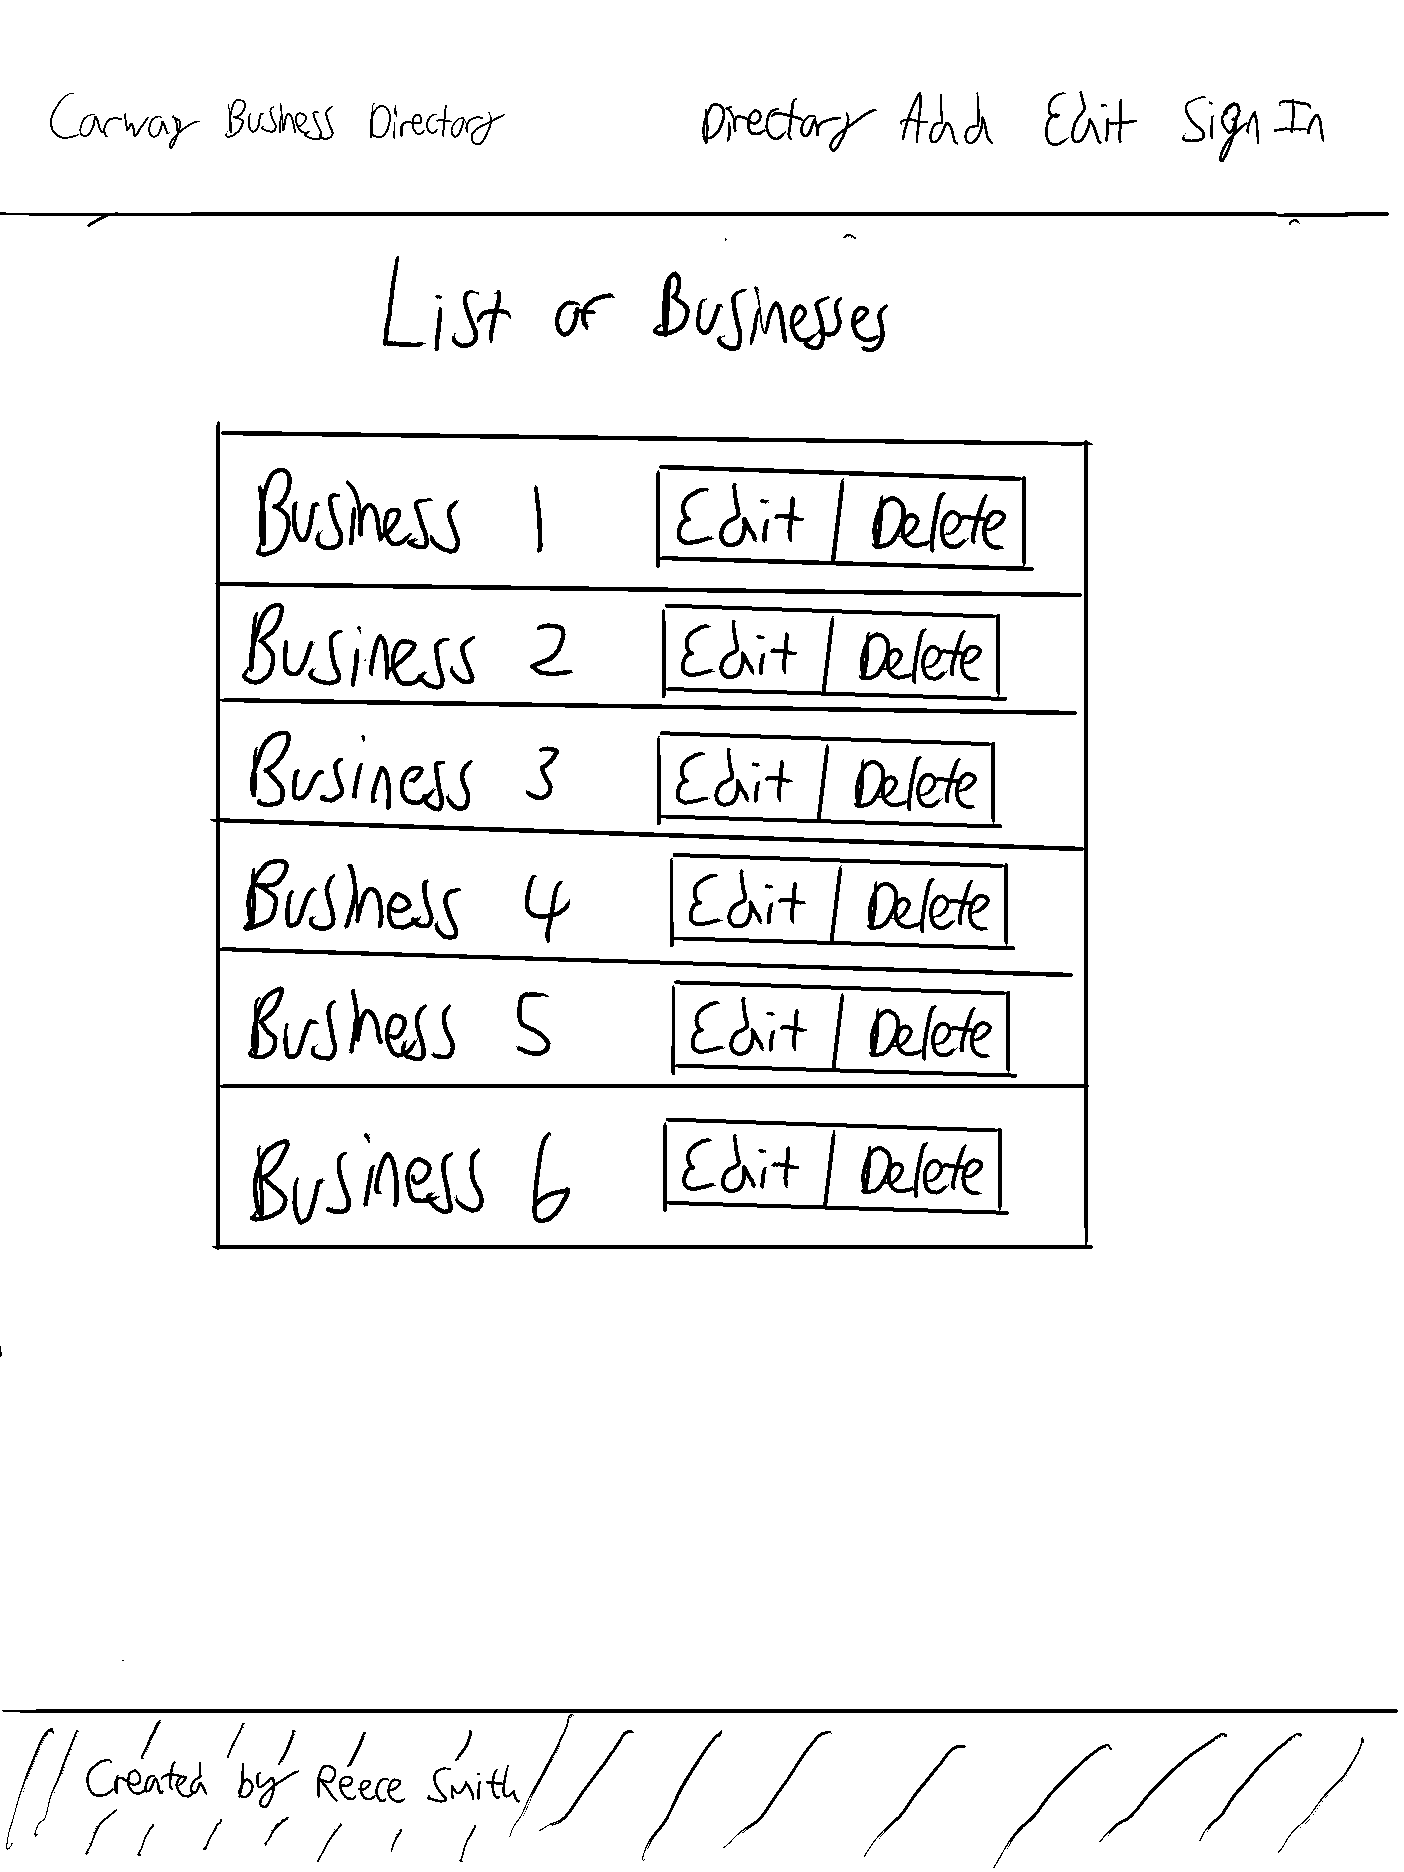 Carway Business Directory Directory Add Edit Sign In
List of Businesses
Business 1 Edit Delete
Business 2 Edit Delete
Business 3 Edit Delete
Business 4 Edit Delete
Business 5 Edit Delete
Business 6 Edit Delete
Created by Reece Smith